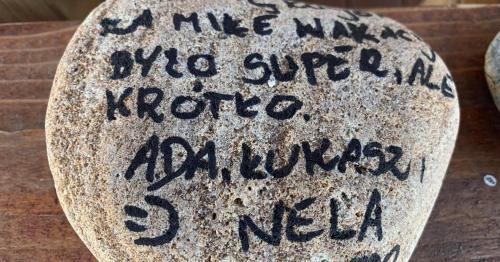 MIŁE WAKAC
BYŁO SUPER, ALE
KRÓTKO.
ADA, ŁUKASZ,
=) NELA